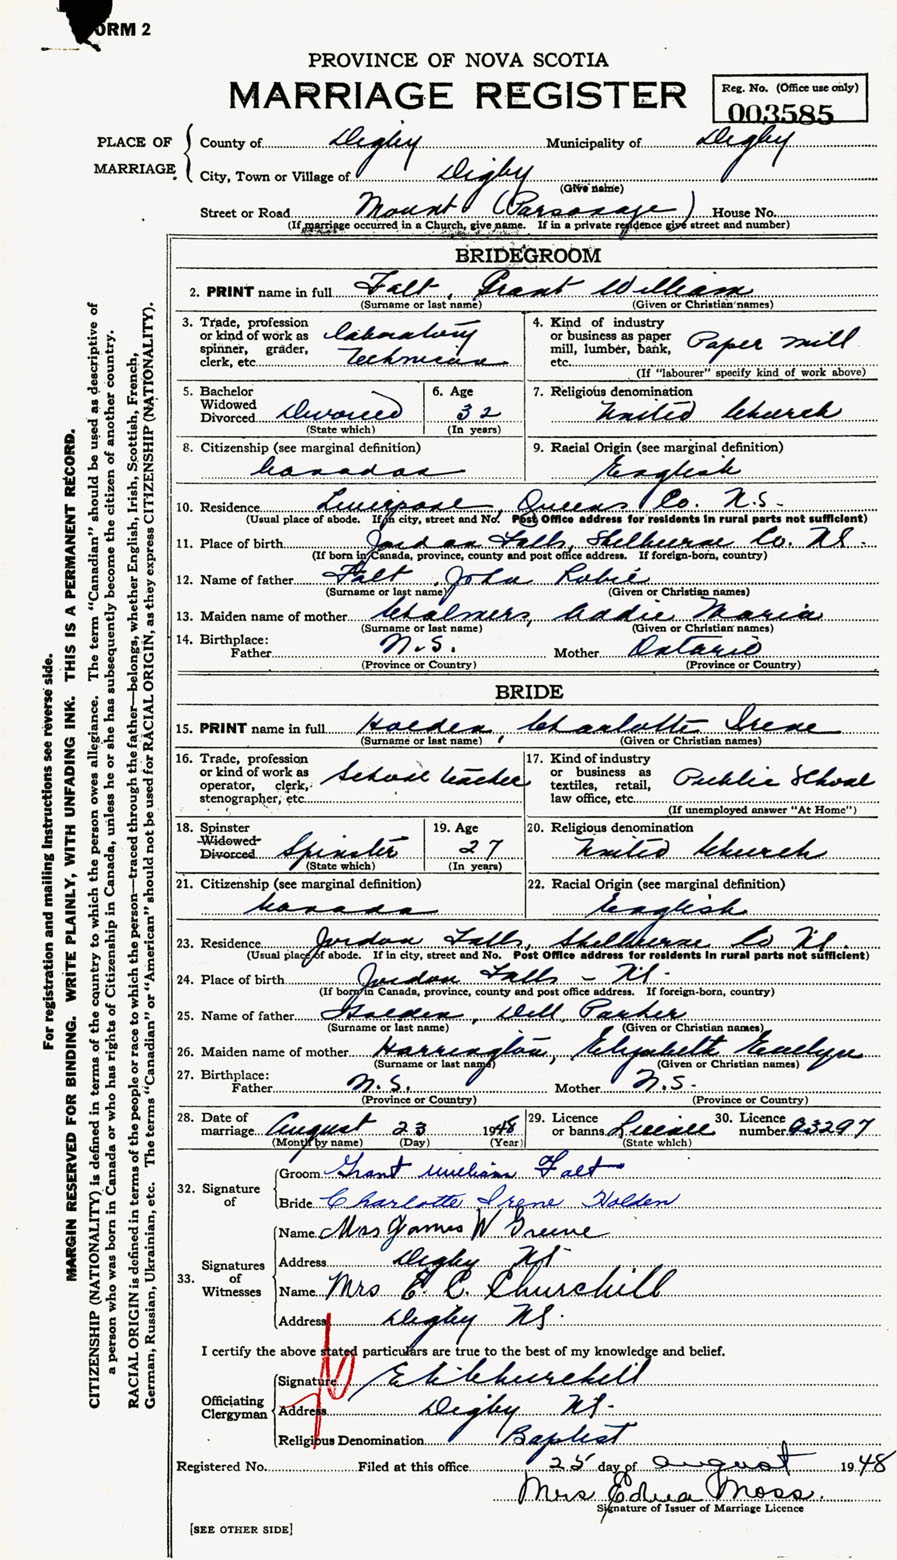 FORM 2
PROVINCE OF NOVA SCOTIA
MARRIAGE REGISTER
Reg. No. (Office use only)
003585
PLACE OF MARRIAGE
County of Digby Municipality of Digby
City, Town or Village of Digby
(Give name)
Street or Road Mount (Parsonage) House No.
(If marriage occurred in a Church, give name. If in a private residence give street and number)
BRIDEGROOM
2. PRINT name in full Falt, Grant William
(Surname or last name) (Given or Christian names)
3. Trade, profession or kind of work as spinner, grader, clerk, etc. Laboratory Technician
4. Kind of industry or business as paper mill, lumber, bank, etc. Paper mill
(If "labourer" specify kind of work above)
5. Bachelor Widowed Divorced Divorced
(State which)
6. Age 32
(In years)
7. Religious denomination United Church
8. Citizenship (see marginal definition) Canadan
9. Racial Origin (see marginal definition) English
10. Residence Liverpool, Queens Co. N.S.
(Usual place of abode. If in city, street and No. Post Office address for residents in rural parts not sufficient)
11. Place of birth Jordan Falls, Shelburne Co. N.S.
(If born in Canada, province, county and post office address. If foreign-born, country)
12. Name of father Falt, John Robie
(Surname or last name) (Given or Christian names)
13. Maiden name of mother Chalmers, Addie Maria
(Surname or last name) (Given or Christian names)
14. Birthplace:
Father N.S. Mother Ontario
(Province or Country) (Province or Country)
BRIDE
15. PRINT name in full Holden, Charlotte Irene
(Surname or last name) (Given or Christian names)
16. Trade, profession or kind of work as operator, clerk, stenographer, etc. School teacher
17. Kind of industry or business as textiles, retail, law office, etc. Public School
(If unemployed answer "At Home")
18. Spinster Widowed Divorced Spinster
(State which)
19. Age 27
(In years)
20. Religious denomination United Church
21. Citizenship (see marginal definition) Canada
22. Racial Origin (see marginal definition) English
23. Residence Jordon Falls, Shelburne Co N.S.
(Usual place of abode. If in city, street and No. Post Office address for residents in rural parts not sufficient)
24. Place of birth Jordon Falls - N.S.
(If born in Canada, province, county and post office address. If foreign-born, country)
25. Name of father Holden, Dell Parker
(Surname or last name) (Given or Christian names)
26. Maiden name of mother Harrington, Elizabeth Evelyn
(Surname or last name) (Given or Christian names)
27. Birthplace:
Father N.S. Mother N.S.
(Province or Country) (Province or Country)
28. Date of marriage August 23 1948
(Month by name) (Day) (Year)
29. Licence or banns
(State which)
30. Licence number 93297
32. Signature of
Groom Grant William Falt
Bride Charlotte Irene Holden
33. Signatures of Witnesses
Name Mrs James W Greene
Address Digby NS
Name Mrs E. C. Churchill
Address Digby NS.
I certify the above stated particulars are true to the best of my knowledge and belief.
Officiating Clergyman
Signature E C Churchill
Address Digby NS.
Religious Denomination Baptist
Registered No. Filed at this office 25 day of August 1948
Mrs Edna Moss.
Signature of Issuer of Marriage Licence
[SEE OTHER SIDE]
For registration and mailing instructions see reverse side.
MARGIN RESERVED FOR BINDING. WRITE PLAINLY, WITH UNFADING INK. THIS IS A PERMANENT RECORD.
CITIZENSHIP (NATIONALITY) is defined in terms of the country to which the person owes allegiance. The term "Canadian" should be used as descriptive of
a person who was born in Canada or who has rights of Citizenship in Canada, unless he or she has subsequently become the citizen of another country.
RACIAL ORIGIN is defined in terms of the people or race to which the person—traced through the father—belongs, whether English, Irish, Scottish, French,
German, Russian, Ukrainian, etc. The terms "Canadian" or "American" should not be used for RACIAL ORIGIN, as they express CITIZENSHIP (NATIONALITY).